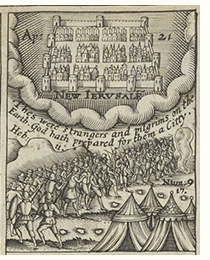 Apo: 21
NEW IERUSALE
They were strangers and pilgrims on the
Earth God hath prepared for them a Citty.
Heb
11:
Num. 9
17.